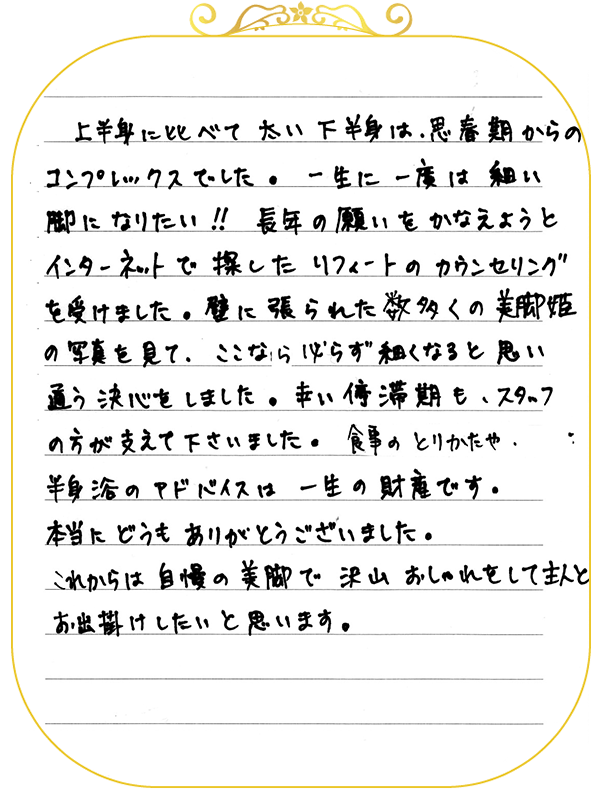 上半身に比べて 太い 下半身は、思春期からの
コンプレックスでした。 一生に 一度は 細い
脚に なりたい!! 長年の願いを かなえようと
インターネットで 探した リフィートの カウンセリング
を受けました。壁に 張られた 数多くの 美脚姫
の写真を見て、ここなら 必らず 細くなると 思い
通う 決心を しました。辛い 停滞期も、スタッフ
の方が支えて下さいました。 食事の とりかたや、
半身浴の アドバイスは 一生の 財産です。
本当に どうも ありがとうございました。
これからは 自慢の 美脚で 沢山 おしゃれをして主人と
お出掛けしたいと思います。